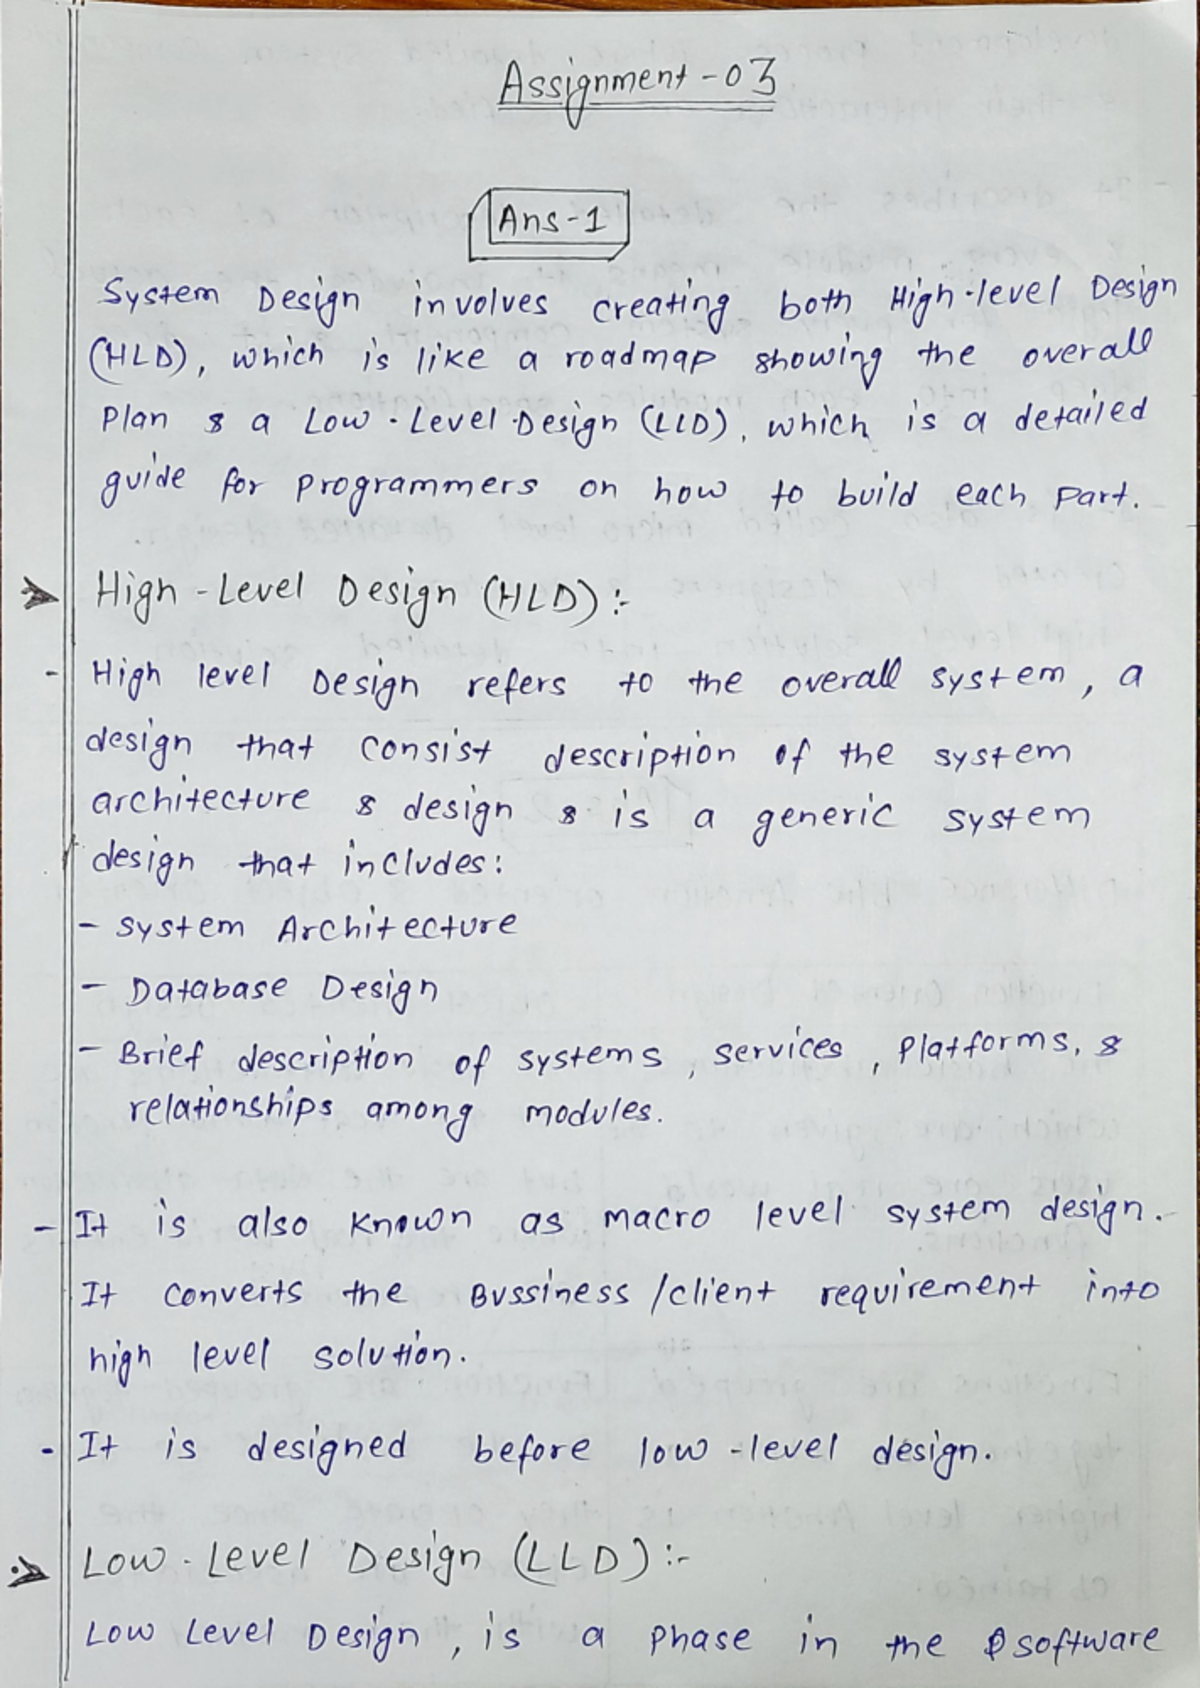 Assignment-03
Ans-1
System Design involves creating both High-level Design
(HLD), which is like a roadmap showing the overall
Plan & a Low-Level Design (LLD), which is a detailed
guide for programmers on how to build each part.
High-Level Design (HLD):-
- High level Design refers to the overall system, a
design that consist description of the system
architecture & design & is a generic system
design that includes:
- System Architecture
- Database Design
- Brief description of systems, services, Platforms, &
relationships among modules.
- It is also known as macro level system design.
It converts the Bussiness/client requirement into
high level solution.
- It is designed before low-level design.
Low-Level Design (LLD):-
Low Level Design, is a phase in the software